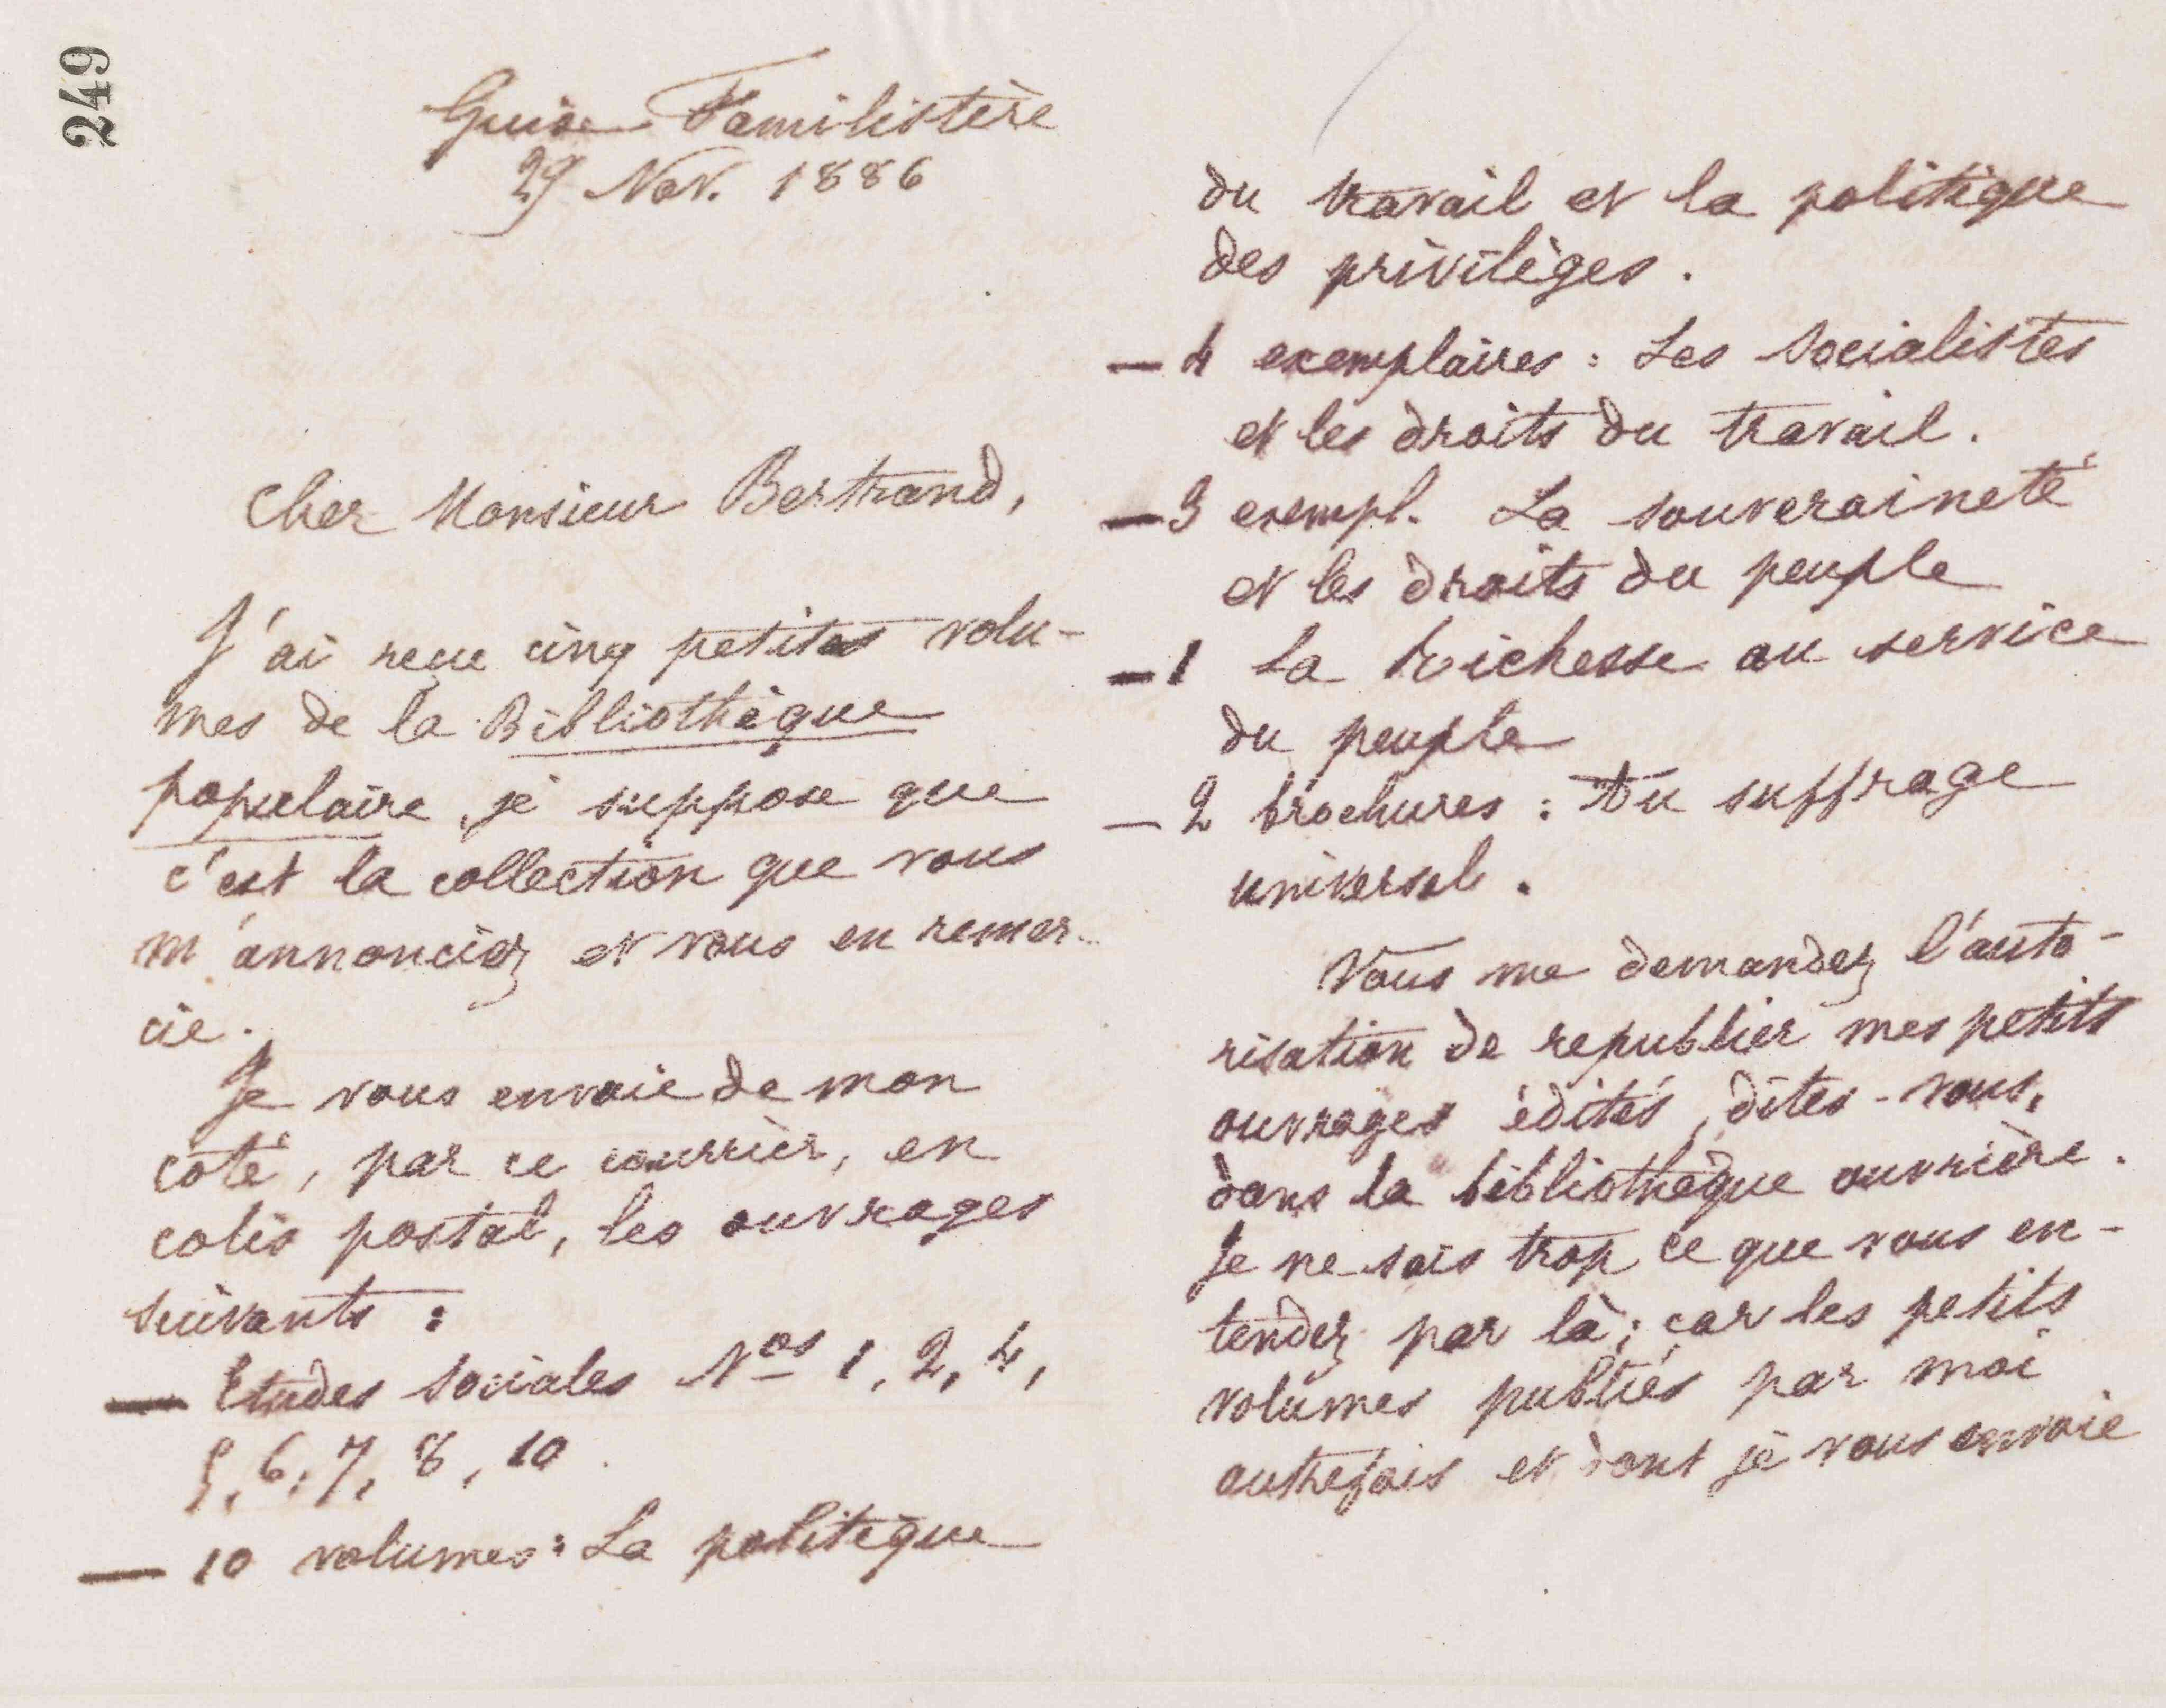 249
Guise Familistère
29 Nov. 1886
Cher Monsieur Bertrand,
J'ai reçu cinq petits volu-
mes de la Bibliothèque
populaire, je suppose que
c'est la collection que vous
m'annonciez et vous en remer-
cie.
Je vous envoie de mon
côté, par ce courrier, en
colis postal, les ouvrages
suivants :
— Etudes sociales Nos 1, 2, 4,
5, 6, 7, 8, 10.
— 10 volumes : La politique
du travail et la politique
des privilèges.
— 4 exemplaires : Les Socialistes
et les droits du travail.
— 3 exempl. La souveraineté
et les droits du peuple
— 1 La Richesse au service
du peuple
— 2 brochures : Du suffrage
universel.
Vous me demandez l'auto-
risation de republier mes petits
ouvrages édités, dites-vous,
dans la bibliothèque ouvrière.
Je ne sais trop ce que vous en-
tendez par là ; car les petits
volumes publiés par moi
autrefois et dont je vous envoie